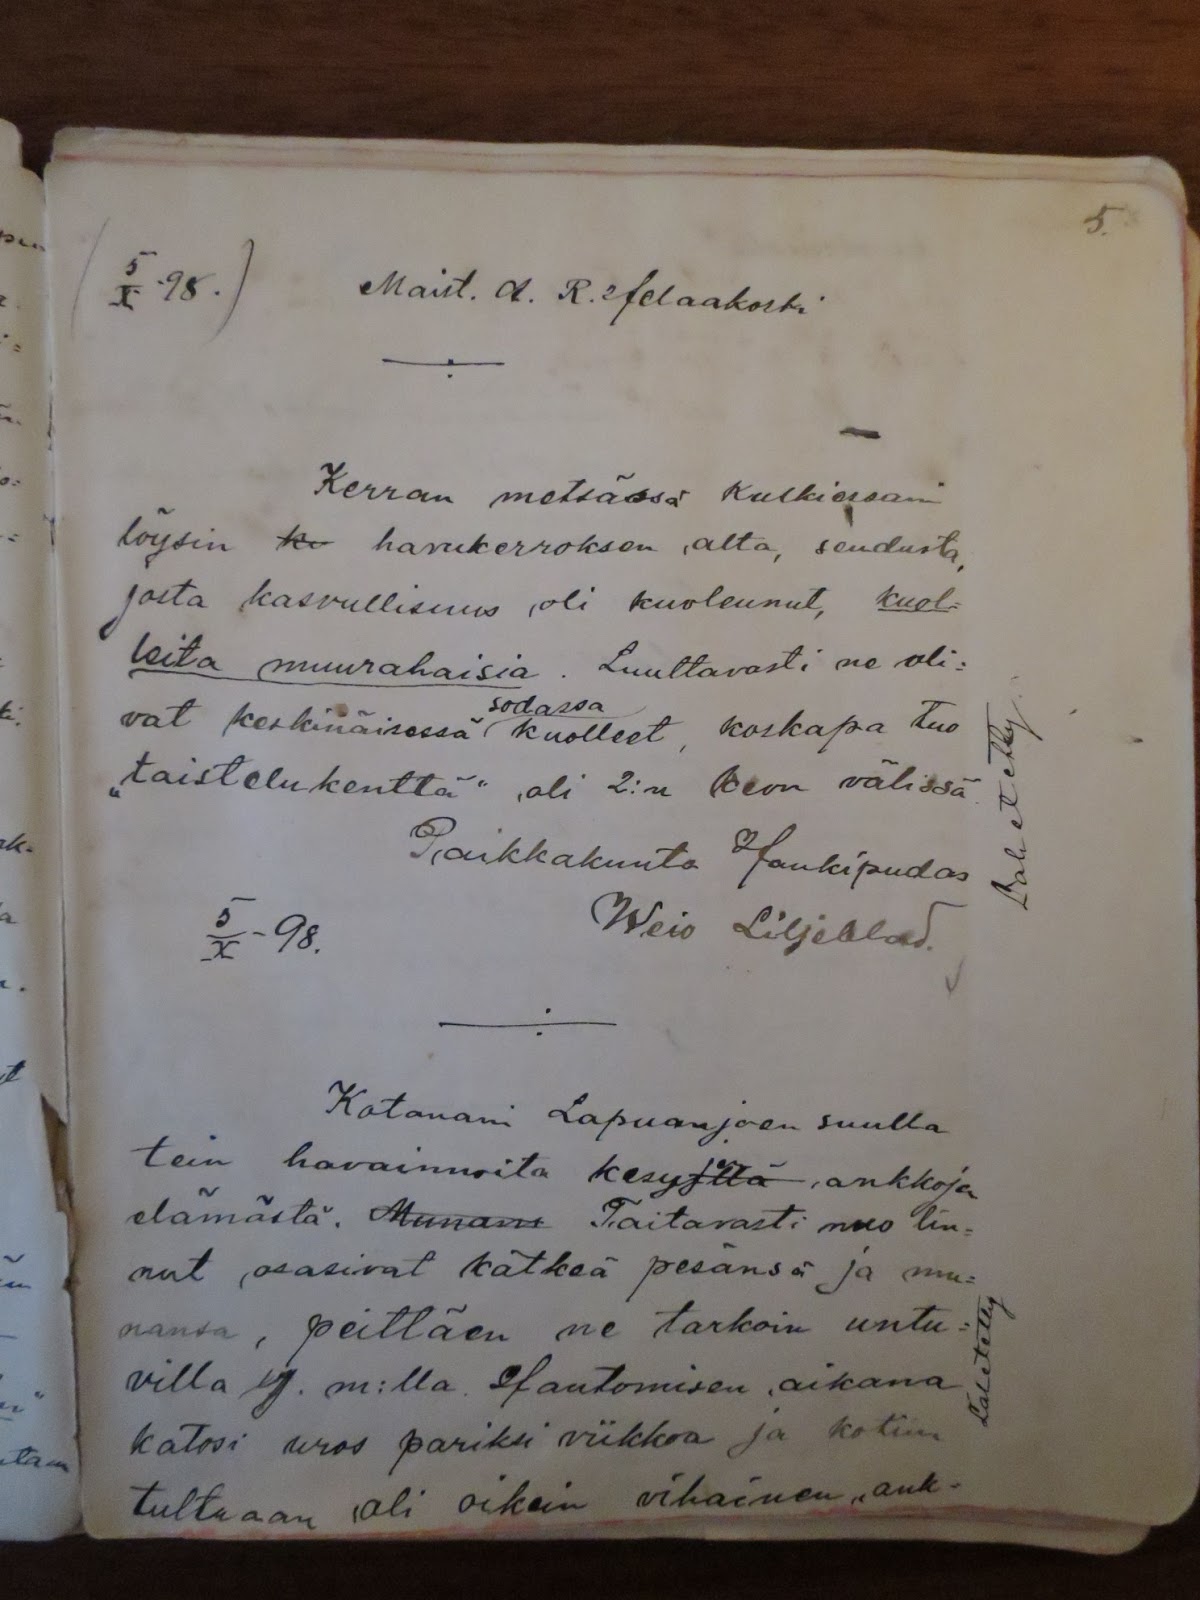 5.
(5/X -98.) Maist. A. R. Helaakoski
Kerran metsässä kulkiessani
löysin ko havukerroksen alta, seudusta,
josta kasvullisuus oli kuoleunut, kuol-
leita muurahaisia. Luultavasti ne oli-
vat keskinäisessä sodassa kuolleet, koskapa tuo
„taistelukenttä“ oli 2:n keon välissä.
Paikkakunta Haukipudas
5/X -98. Weio Liljeblad.
Lähetetty.
Kotanani Lapuanjoen suulla
tein havainnoita kesyjen ankkoja
elämästä. Munans Taitavasti nuo lin-
nut osasivat kätkeä pesänsä ja mu-
nansa, peittäen ne tarkoin untu-
villa y. m:lla. Hautomisen aikana
katosi uros pariksi viikkoa ja kotiin
tultuaan oli oikein vihainen „ank-
Lähetetty